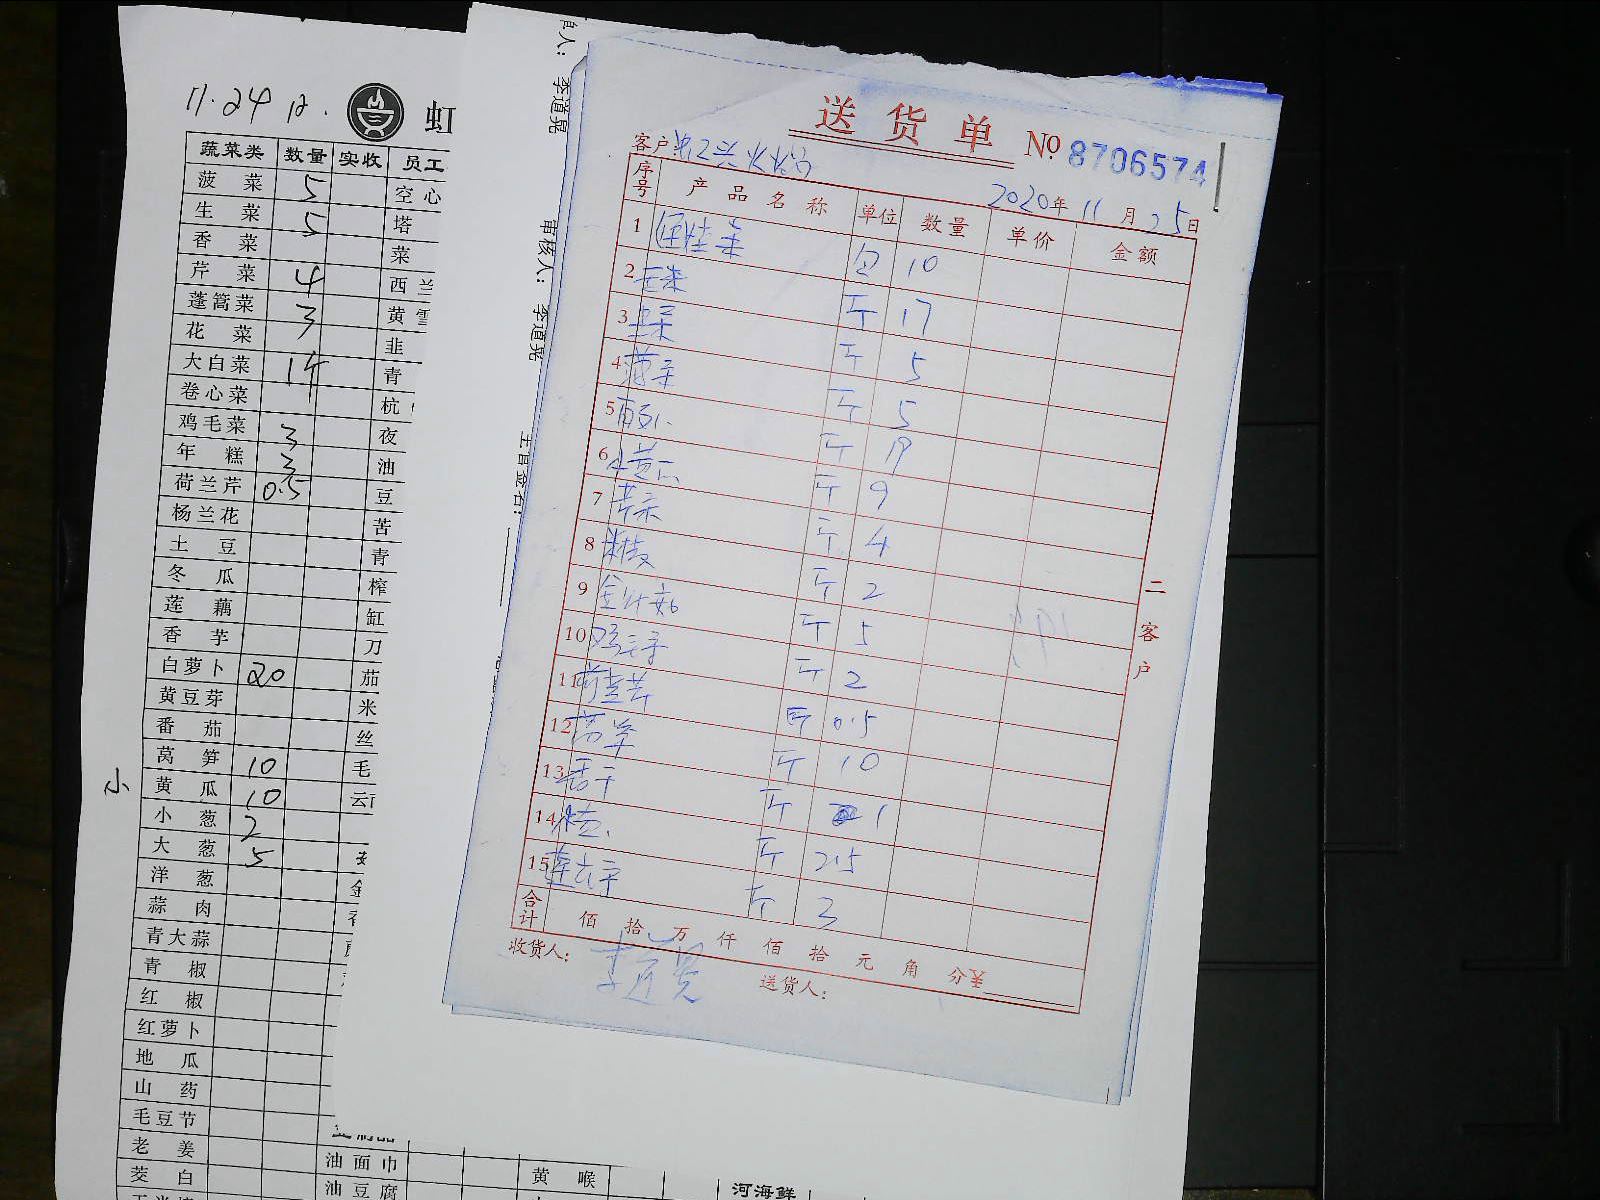 11.24
虹
蔬菜类 数量 实收 员工
菠菜 5 空心
生菜 5 塔
香菜 菜
芹菜 4 西兰
蓬篙菜 3 黄
花菜 韭
大白菜 14 青
卷心菜 杭
鸡毛菜 3 夜
年糕 3 油
荷兰芹 0.5 豆
杨兰花 苦
土豆 青
冬瓜 榨
莲藕 缸
香芋 刀
白萝卜 20 茄
黄豆芽 米
番茄 丝
莴笋 10 毛
小 黄瓜 10
小葱 2
大葱 5
洋葱 金
蒜肉
青大蒜
青椒
红椒
红萝卜
地瓜
山药
毛豆节
老姜 油面巾 黄喉
茭白 油豆腐 河海鲜
人：
李道晃
审核人：
李道晃
送货单 № 8706574
客户：
2020年 11月 25日
序号 产品名称 单位 数量 单价 金额
1 包 10
2 斤 17
3 生菜 斤 5
4 菠菜 斤 5
5 斤 19
6 小黄瓜 斤 9
7 芹菜 斤 4
8 斤 2
9 金针菇 斤 5
10 鸡毛菜 斤 2
11 荷兰芹 斤 0.5
12 斤 10
13 斤 1
14 斤 25
15 斤 3
合计 佰 拾 万 仟 佰 拾 元 角 分 ¥
收货人： 李道晃 送货人：
二客户